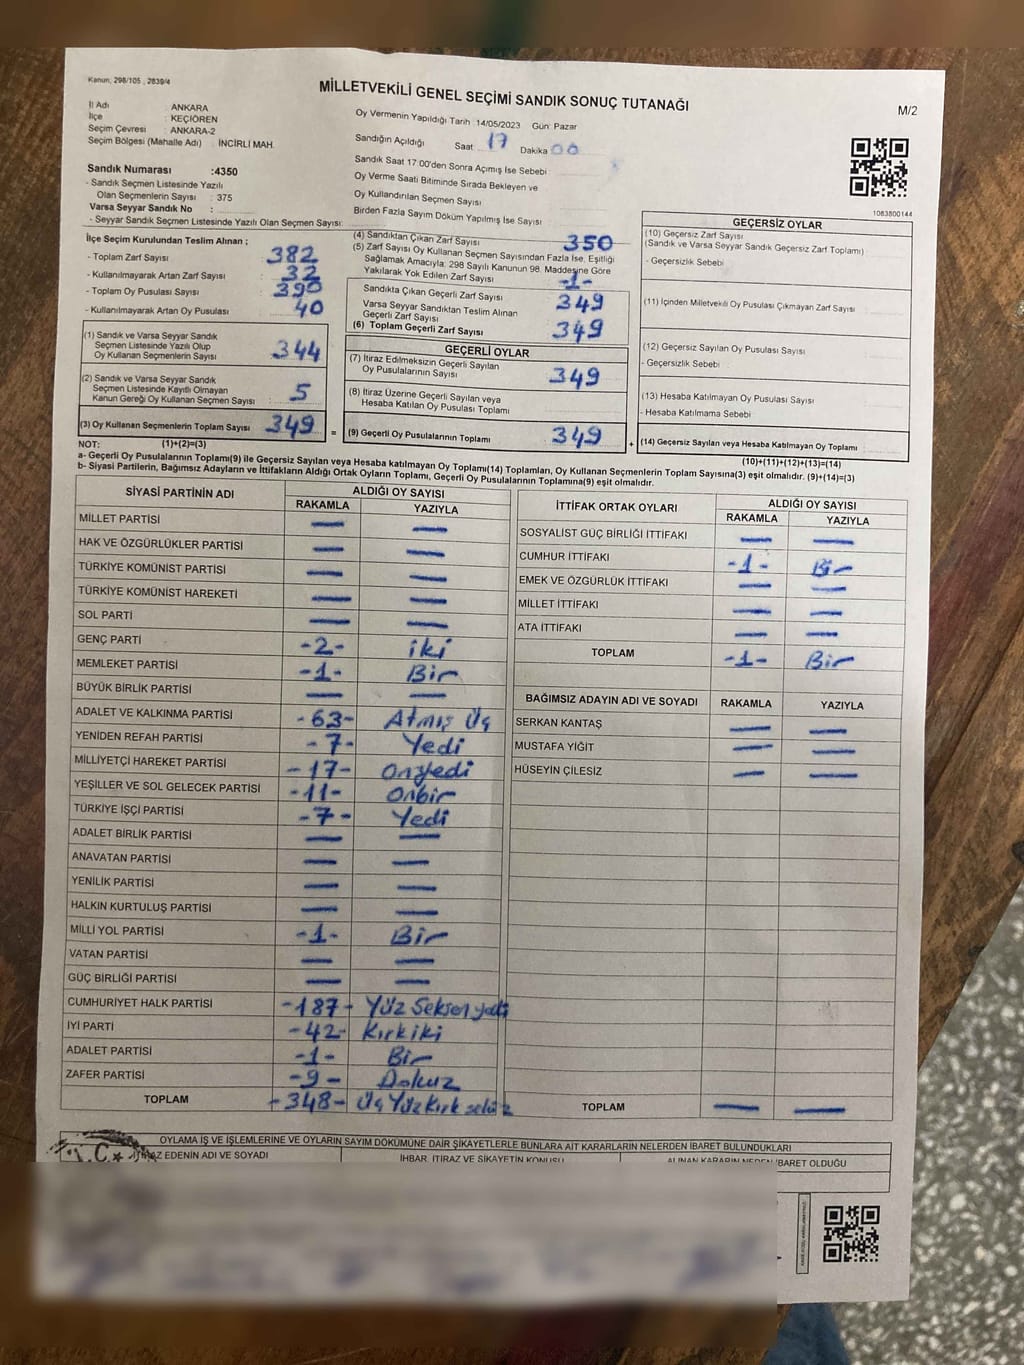 Kanun; 298/105 , 2839/4
MİLLETVEKİLİ GENEL SEÇİMİ SANDIK SONUÇ TUTANAĞI
M/2
İl Adı : ANKARA
İlçe : KEÇİÖREN
Seçim Çevresi : ANKARA-2
Seçim Bölgesi (Mahalle Adı) : İNCİRLİ MAH.
Sandık Numarası :4350
- Sandık Seçmen Listesinde Yazılı
Olan Seçmenlerin Sayısı : 375
Varsa Seyyar Sandık No :
- Seyyar Sandık Seçmen Listesinde Yazılı Olan Seçmen Sayısı:
Oy Vermenin Yapıldığı Tarih :14/05/2023 Gün: Pazar
Sandığın Açıldığı Saat 17 Dakika 00
Sandık Saat 17:00'den Sonra Açımış İse Sebebi :
Oy Verme Saati Bitiminde Sırada Bekleyen ve
Oy Kullandırılan Seçmen Sayısı :
Birden Fazla Sayım Döküm Yapılmış İse Sayısı :
1083800144
İlçe Seçim Kurulundan Teslim Alınan ;
- Toplam Zarf Sayısı : 382
- Kullanılmayarak Artan Zarf Sayısı : 32
- Toplam Oy Pusulası Sayısı : 390
- Kullanılmayarak Artan Oy Pusulası : 40
(1) Sandık ve Varsa Seyyar Sandık
Seçmen Listesinde Yazılı Olup
Oy Kullanan Seçmenlerin Sayısı : 344
(2) Sandık ve Varsa Seyyar Sandık
Seçmen Listesinde Kayıtlı Olmayan
Kanun Gereği Oy Kullanan Seçmen Sayısı : 5
(3) Oy Kullanan Seçmenlerin Toplam Sayısı : 349
(4) Sandıktan Çıkan Zarf Sayısı : 350
(5) Zarf Sayısı Oy Kullanan Seçmen Sayısından Fazla İse, Eşitliği
Sağlamak Amacıyla; 298 Sayılı Kanunun 98. Maddesine Göre
Yakılarak Yok Edilen Zarf Sayısı : -1-
Sandıkta Çıkan Geçerli Zarf Sayısı : 349
Varsa Seyyar Sandıktan Teslim Alınan
Geçerli Zarf Sayısı
(6) Toplam Geçerli Zarf Sayısı : 349
GEÇERLİ OYLAR
(7) İtiraz Edilmeksizin Geçerli Sayılan
Oy Pusulalarının Sayısı : 349
(8) İtiraz Üzerine Geçerli Sayılan veya
Hesaba Katılan Oy Pusulası Toplamı :
= (9) Geçerli Oy Pusulalarının Toplamı : 349
GEÇERSİZ OYLAR
(10) Geçersiz Zarf Sayısı
(Sandık ve Varsa Seyyar Sandık Geçersiz Zarf Toplamı) :
- Geçersizlik Sebebi :
(11) İçinden Milletvekili Oy Pusulası Çıkmayan Zarf Sayısı :
(12) Geçersiz Sayılan Oy Pusulası Sayısı :
- Geçersizlik Sebebi :
(13) Hesaba Katılmayan Oy Pusulası Sayısı :
- Hesaba Katılmama Sebebi :
+ (14) Geçersiz Sayılan veya Hesaba Katılmayan Oy Toplamı :
NOT: (1)+(2)=(3) (10)+(11)+(12)+(13)=(14)
a- Geçerli Oy Pusulalarının Toplamı(9) ile Geçersiz Sayılan veya Hesaba katılmayan Oy Toplamı(14) Toplamları, Oy Kullanan Seçmenlerin Toplam Sayısına(3) eşit olmalıdır. (9)+(14)=(3)
b- Siyasi Partilerin, Bağımsız Adayların ve İttifakların Aldığı Ortak Oyların Toplamı, Geçerli Oy Pusulalarının Toplamına(9) eşit olmalıdır.
SİYASİ PARTİNİN ADI ALDIĞI OY SAYISI
RAKAMLA YAZIYLA
MİLLET PARTİSİ — —
HAK VE ÖZGÜRLÜKLER PARTİSİ — —
TÜRKİYE KOMÜNİST PARTİSİ — —
TÜRKİYE KOMÜNİST HAREKETİ — —
SOL PARTİ — —
GENÇ PARTİ -2- iki
MEMLEKET PARTİSİ -1- Bir
BÜYÜK BİRLİK PARTİSİ — —
ADALET VE KALKINMA PARTİSİ -63- Atmış Üç
YENİDEN REFAH PARTİSİ -7- Yedi
MİLLİYETÇİ HAREKET PARTİSİ -17- Onyedi
YEŞİLLER VE SOL GELECEK PARTİSİ -11- Onbir
TÜRKİYE İŞÇİ PARTİSİ -7- Yedi
ADALET BİRLİK PARTİSİ — —
ANAVATAN PARTİSİ — —
YENİLİK PARTİSİ — —
HALKIN KURTULUŞ PARTİSİ — —
MİLLİ YOL PARTİSİ -1- Bir
VATAN PARTİSİ — —
GÜÇ BİRLİĞİ PARTİSİ — —
CUMHURİYET HALK PARTİSİ -187- Yüz Seksen yedi
İYİ PARTİ -42- Kırkiki
ADALET PARTİSİ -1- Bir
ZAFER PARTİSİ -9- Dokuz
TOPLAM -348- Üç Yüz Kırk sekiz
İTTİFAK ORTAK OYLARI ALDIĞI OY SAYISI
RAKAMLA YAZIYLA
SOSYALİST GÜÇ BİRLİĞİ İTTİFAKI — —
CUMHUR İTTİFAKI -1- Bir
EMEK VE ÖZGÜRLÜK İTTİFAKI — —
MİLLET İTTİFAKI — —
ATA İTTİFAKI — —
TOPLAM -1- Bir
BAĞIMSIZ ADAYIN ADI VE SOYADI RAKAMLA YAZIYLA
SERKAN KANTAŞ — —
MUSTAFA YİĞİT — —
HÜSEYİN ÇİLESİZ — —
TOPLAM — —
OYLAMA İŞ VE İŞLEMLERİNE VE OYLARIN SAYIM DÖKÜMÜNE DAİR ŞİKAYETLERLE BUNLARA AİT KARARLARIN NELERDEN İBARET BULUNDUKLARI
İTİRAZ EDENİN ADI VE SOYADI İHBAR, İTİRAZ VE ŞİKAYETİN KONUSU ALINAN KARARIN NEDEN İBARET OLDUĞU
T.C.